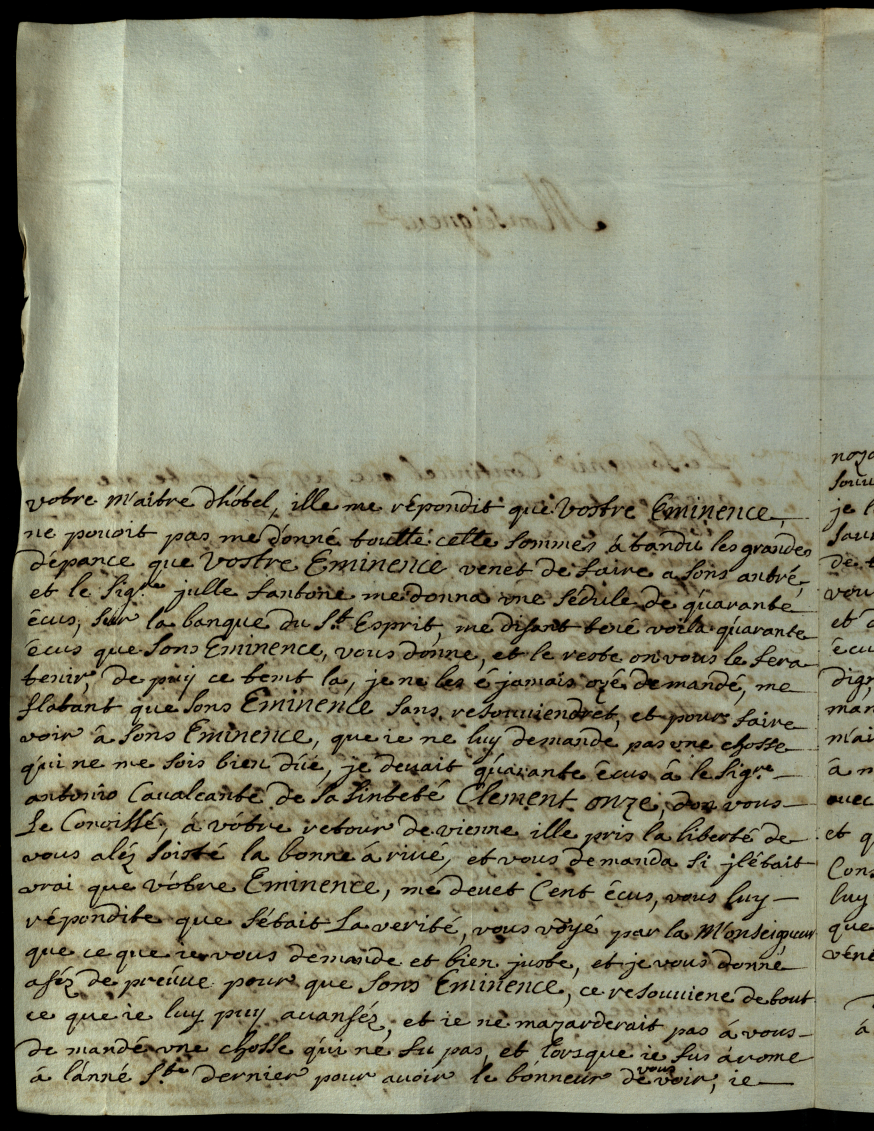 Monseigneur
votre m'aitre dhôtel, ille me répondit que Vostre Eminence,
ne pouoit pas me donné toutte cette sommes, á tandu les grandes
dépance que Vostre Eminence venet de faire a sons antré,
et le Sigre. julle santone me donna une sédule de quarante
écus, sur la banque du St. Esprit, me disant tené voila quarante
écus que sons Eminence, vous donne, et le reste on vous le fera
tenir, de puy ce temt la, je ne les é jamais ozé demandé, me
flatant que sons Eminence sans resouviendret, et pour faire
voir á sons Eminence, que ie ne luy demande pas une chosse
qui ne me sois bien düe, je devait quarante écus á le Sigre.
antonio Cavalcante de sa sinteté Clement onze, don vous
Le Conoissé, á vótre retour de vienne ille pris la liberté de
vous aléz soisté la bonne á rivé, et vous demanda si jlétait
vrai que vótre Eminence, me devet Cent écus, vous luy
répondite que sétait La verité, vous vöyé par la M'onseigneur
que ce que ie vous demande et bien juste, et je vous donné
aséz de preúve pour que sons Eminence, ce resouviene de tout
ce que ie luy puy avanséz, et ie ne mazarderait pas á vous
de mandé une chosse qui ne fu pas, et lorsque ie fus á rome
á lánné Ste. dernier pour avoir le bonneur de vous voir, ie